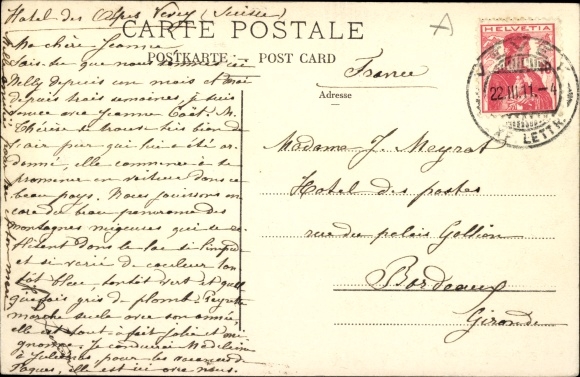 Hotel des Alpes Vevey (Suisse)
CARTE POSTALE
POSTKARTE POST CARD
France
Adresse
HELVETIA
VEVEY
22.III.11.-4
LETTR.
Ma chère Jeanne
Sais-tu que nous sommes ici
Nelly depuis un mois et moi
depuis trois semaines, je suis
venue avec Jeanne M.
Thérèse se trouve très bien de
l'air pur qui lui a été or
donné, elle commence à se
promener en voiture dans ce
beau pays. Nous jouissons en
core du beau panorama des
montagnes neigeuses qui se re
flètent dans le lac si limpide
et si varié de couleur tan
tôt bleu, tantôt vert et quel
quefois gris de plomb.
marche seule avec son
elle est tout à fait jolie et mi
gnonne. Je conduirai Madeleine
à pour les vacances de
Pâques, elle est ici avec nous.
Madame J. Meyrat
Hotel des postes
rue du palais Gallien
Bordeaux
Gironde